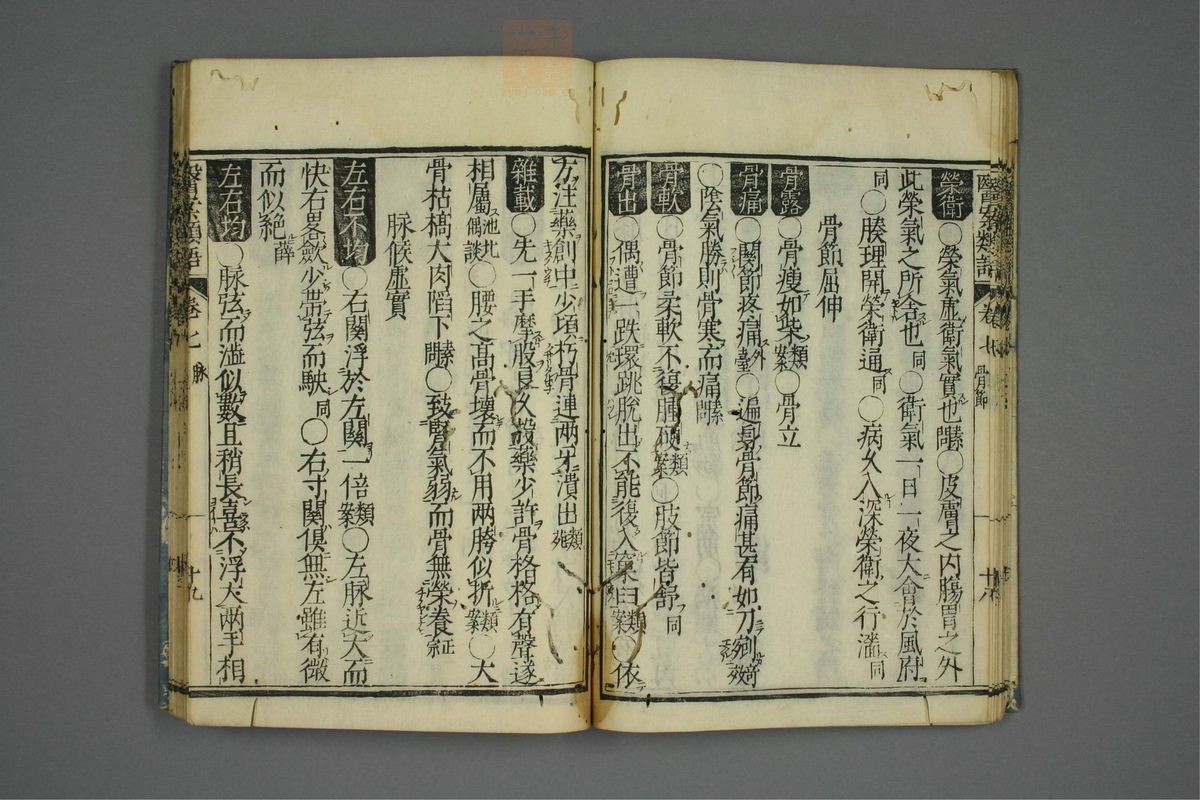 醫案類語 卷七 骨節 十八
榮衛○榮氣虛衛氣實也素問○皮膚之内腸胃之外
此榮氣之所舍也同○衛氣一日一夜大會於風府
同○腠理開榮衛通同○病久入深榮衛之行濇同
骨節屈伸
骨露○骨瘦如柴類案○骨立
骨痛○關節疼痛外臺○遍身骨節痛甚有如刀剜奇效
○陰氣勝則骨寒而痛素問
骨軟○骨節柔軟不復類案○肢節皆舒同
骨出○偶遭一跌環跳脫出不能復入窠臼類案○依
方注藥創中少頃朽骨連兩牙潰出類苑
雜載○先一手摩股良久設藥少許骨格格有聲遂
相屬池北偶談○腰之高骨壞而不用兩胯似折類案○大
骨枯槁大肉陷下素問○致腎氣弱而骨無榮養正宗
脉候虛實
左右不均○右關浮於左關一倍類案○左脉近大而
快右畧歛少帶弦而駛同○右寸關俱無左雖有微
而似絕薛
左右均○脉弦而濇似數且稍長喜不浮大兩手相
醫案類語 卷七 脉 十九